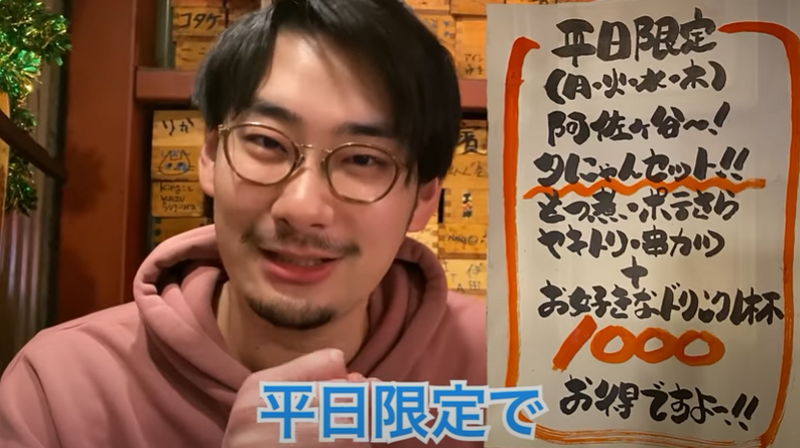 コタケ
りか
平日限定
(月・火・水・木)
阿佐ヶ谷〜!
夕にゃんセット!!
もつ煮・ポテさら
ヤキトリ・串カツ
+
お好きなドリンク1杯
1000
お得ですよー!!
平日限定で